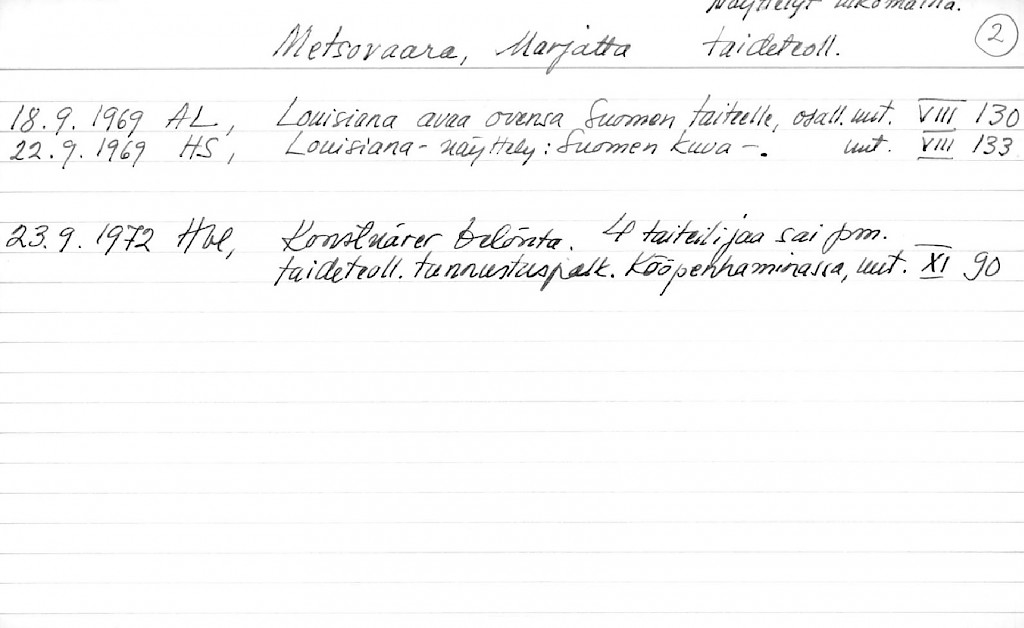 Näyttelyt ulkomailla.
Metsovaara, Marjatta taideteoll. 2
18.9.1969 AL, Louisiana avaa ovensa Suomen taiteelle, osall. uut. VIII 130
22.9.1969 HS, Louisiana-näyttely: Suomen kuva -. uut. VIII 133
23.9.1972 Hbl, Konstnärer belönta. 4 taiteilijaa sai pm.
taideteoll. tunnustuspalk. Kööpenhaminassa, uut. XI 90